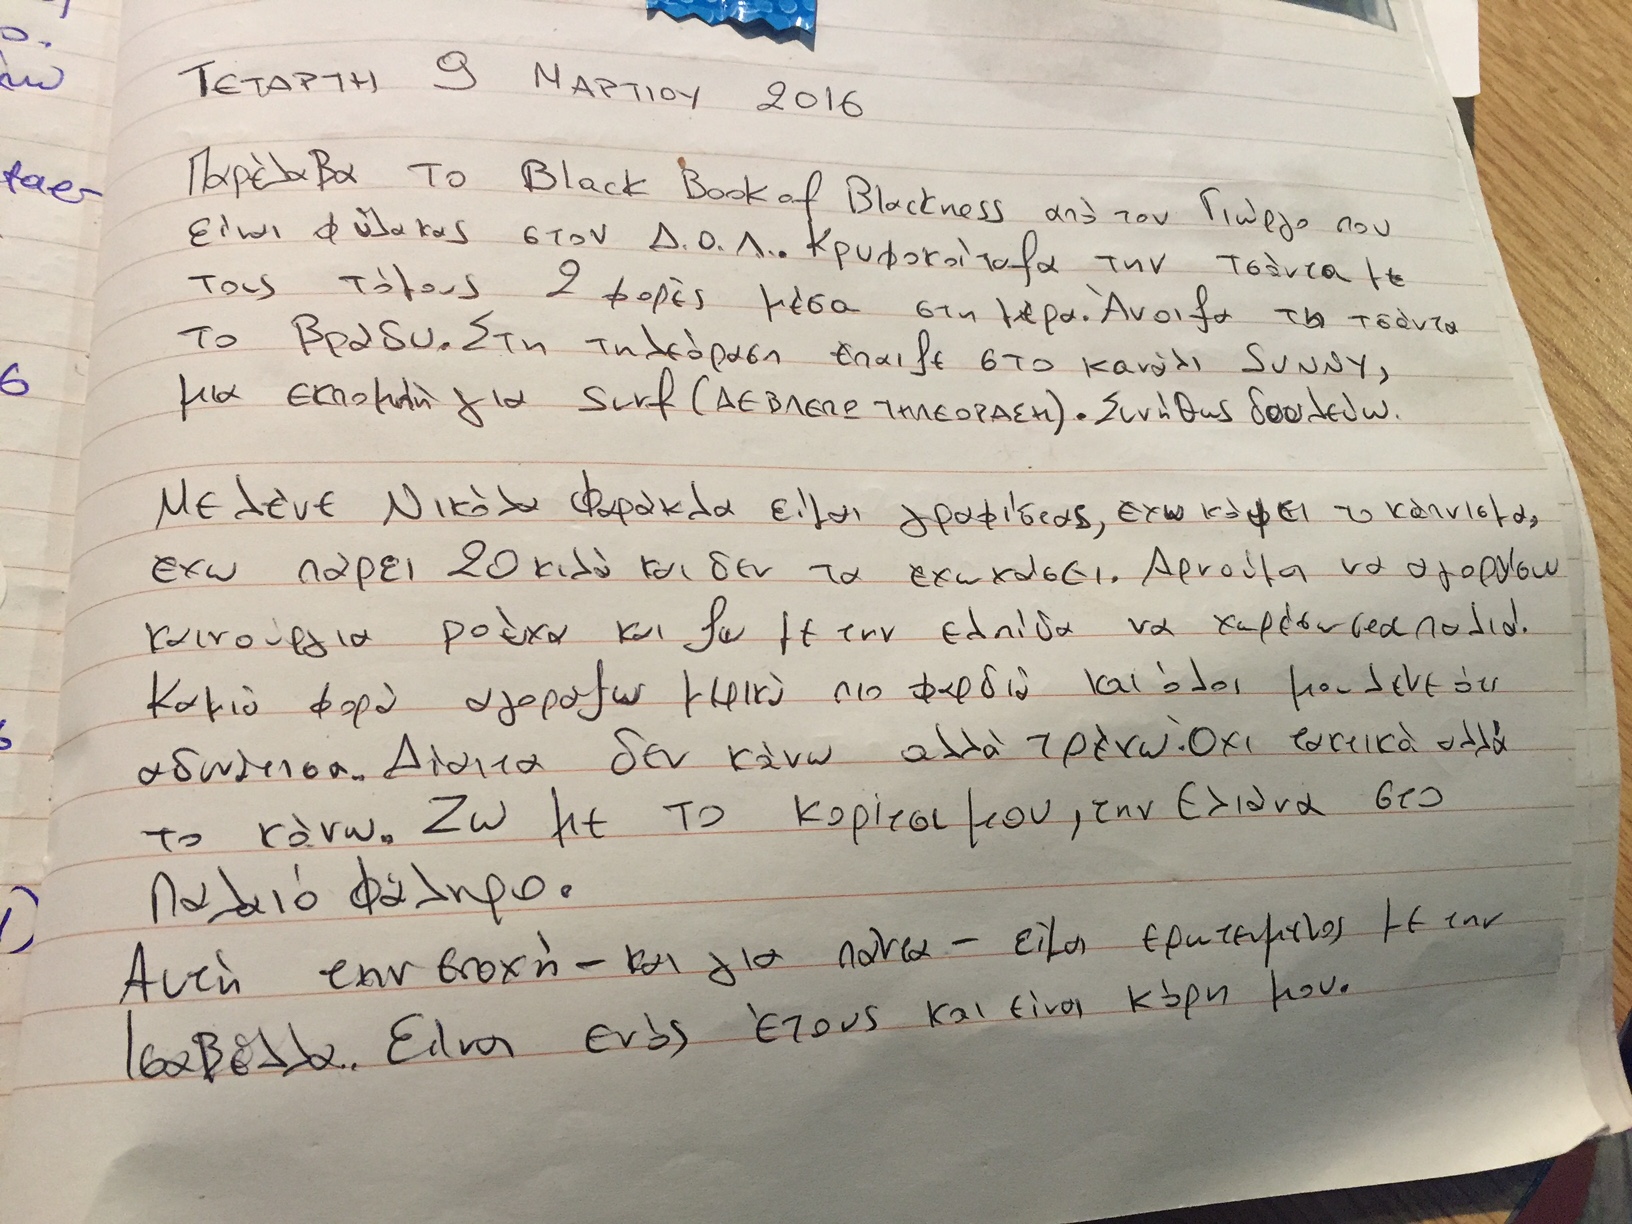 ΤΕΤΑΡΤΗ 9 ΜΑΡΤΙΟΥ 2016
Παρέλαβα το Black Book of Blackness από τον Γιώργο που
είναι φύλακας στον Δ.Ο.Λ.. Κρυφοκοίταξα την τσάντα με
τους τόμους 2 φορές μέσα στη μέρα. Άνοιξα τη τσάντα
το βράδυ. Στη τηλεόραση έπαιξε στο κανάλι SUNNY,
μια εκπομπή για Surf (ΔΕ ΒΛΕΠΩ ΤΗΛΕΟΡΑΣΗ). Συνήθως δουλεύω.
Με λένε Νικόλα Φαράκλα είμαι γραφίστας, εχω κόψει το κάπνισμα,
εχω πάρει 20 κιλά και δεν τα εχω χάσει. Αρνούμαι να αγοράσω
καινούργια ρούχα και ζω με την ελπίδα να χωρέσω στα παλιά.
Καμιά φορά αγοράζω μερικά πιο φαρδιά και όλοι μου λένε ότι
αδυνάτισα. Δίαιτα δεν κάνω αλλά τρέχω. Οχι τακτικά αλλά
το κάνω. Ζω με το κορίτσι μου, την Ελιάνα στο
Παλαιό Φάληρο.
Αυτή την εποχή – και για πάντα – είμαι ερωτευμένος με την
Ισαβέλλα. Είναι ενός έτους και είναι κόρη μου.